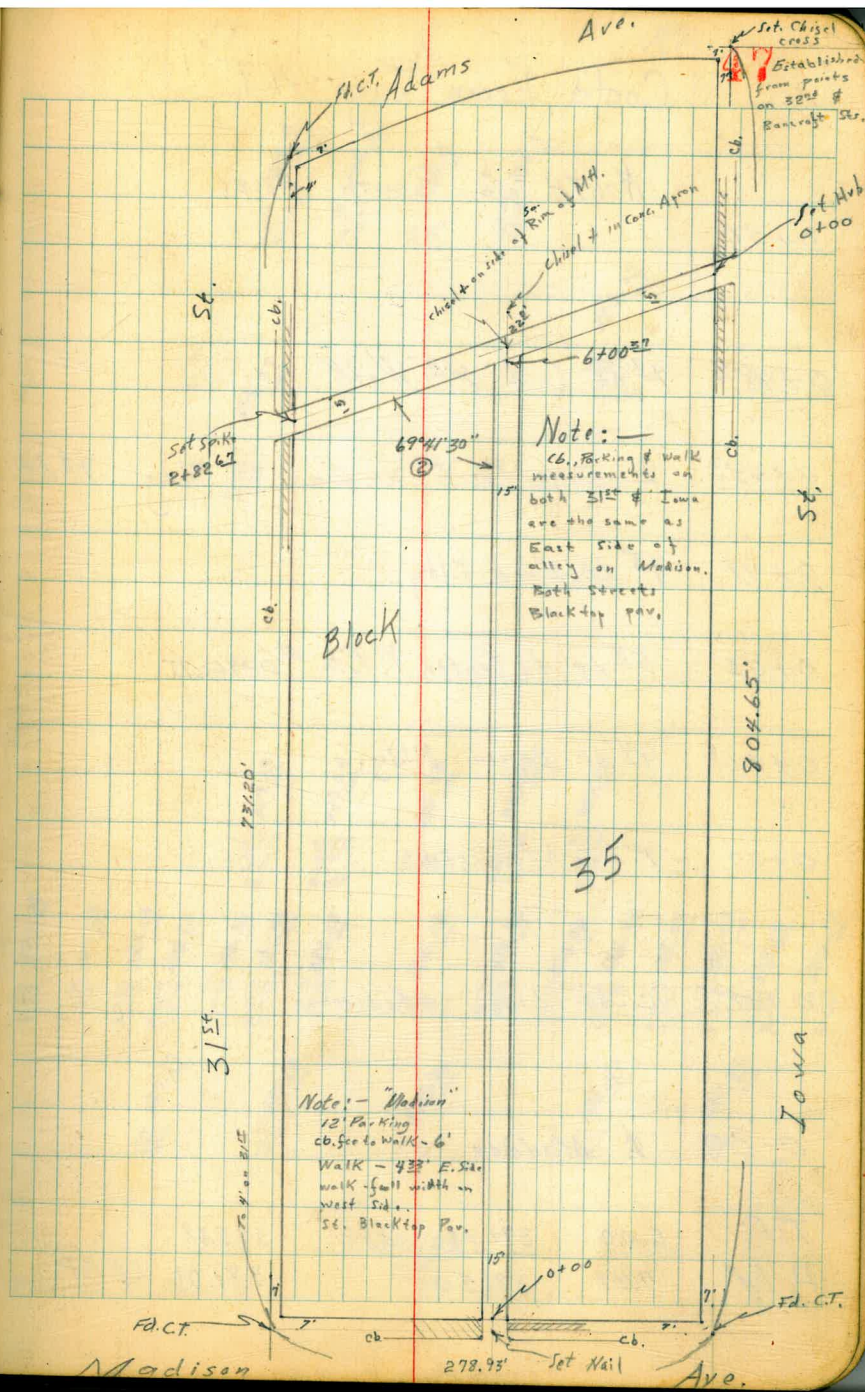 Ave.
Adams
Fd. C.T.
Set. Chisel
cross
47
Established
from points
on 32nd &
Bancroft Sts.
7'
7'
7'
4'
cb.
Set Hub
0+00
St.
cb.
Sq.
chisel + on side of Rim of MH.
Chisel + in Conc. Apron
15'
6+00 37
15'
Set Spike
2+82 67
69°41'30"
②
15'
Note: —
Cb., Parking & Walk
measurements on
both 31st & Iowa
are the same as
East Side of
alley on Madison.
Both Streets
Blacktop pav.
cb.
St.
cb.
Block
804.65'
731.20'
35
31 St.
Iowa
Note: — "Madison"
12' Parking
cb. fce to Walk - 6'
Walk - 4 33' E. Side
walk - full width on
West Side.
St. Blacktop Pav.
To 4' on 31st
15'
0+00
7'
7'
Fd. C.T.
7'
7'
Fd. C.T.
cb
cb.
Set Nail
278.93'
Madison
Ave.